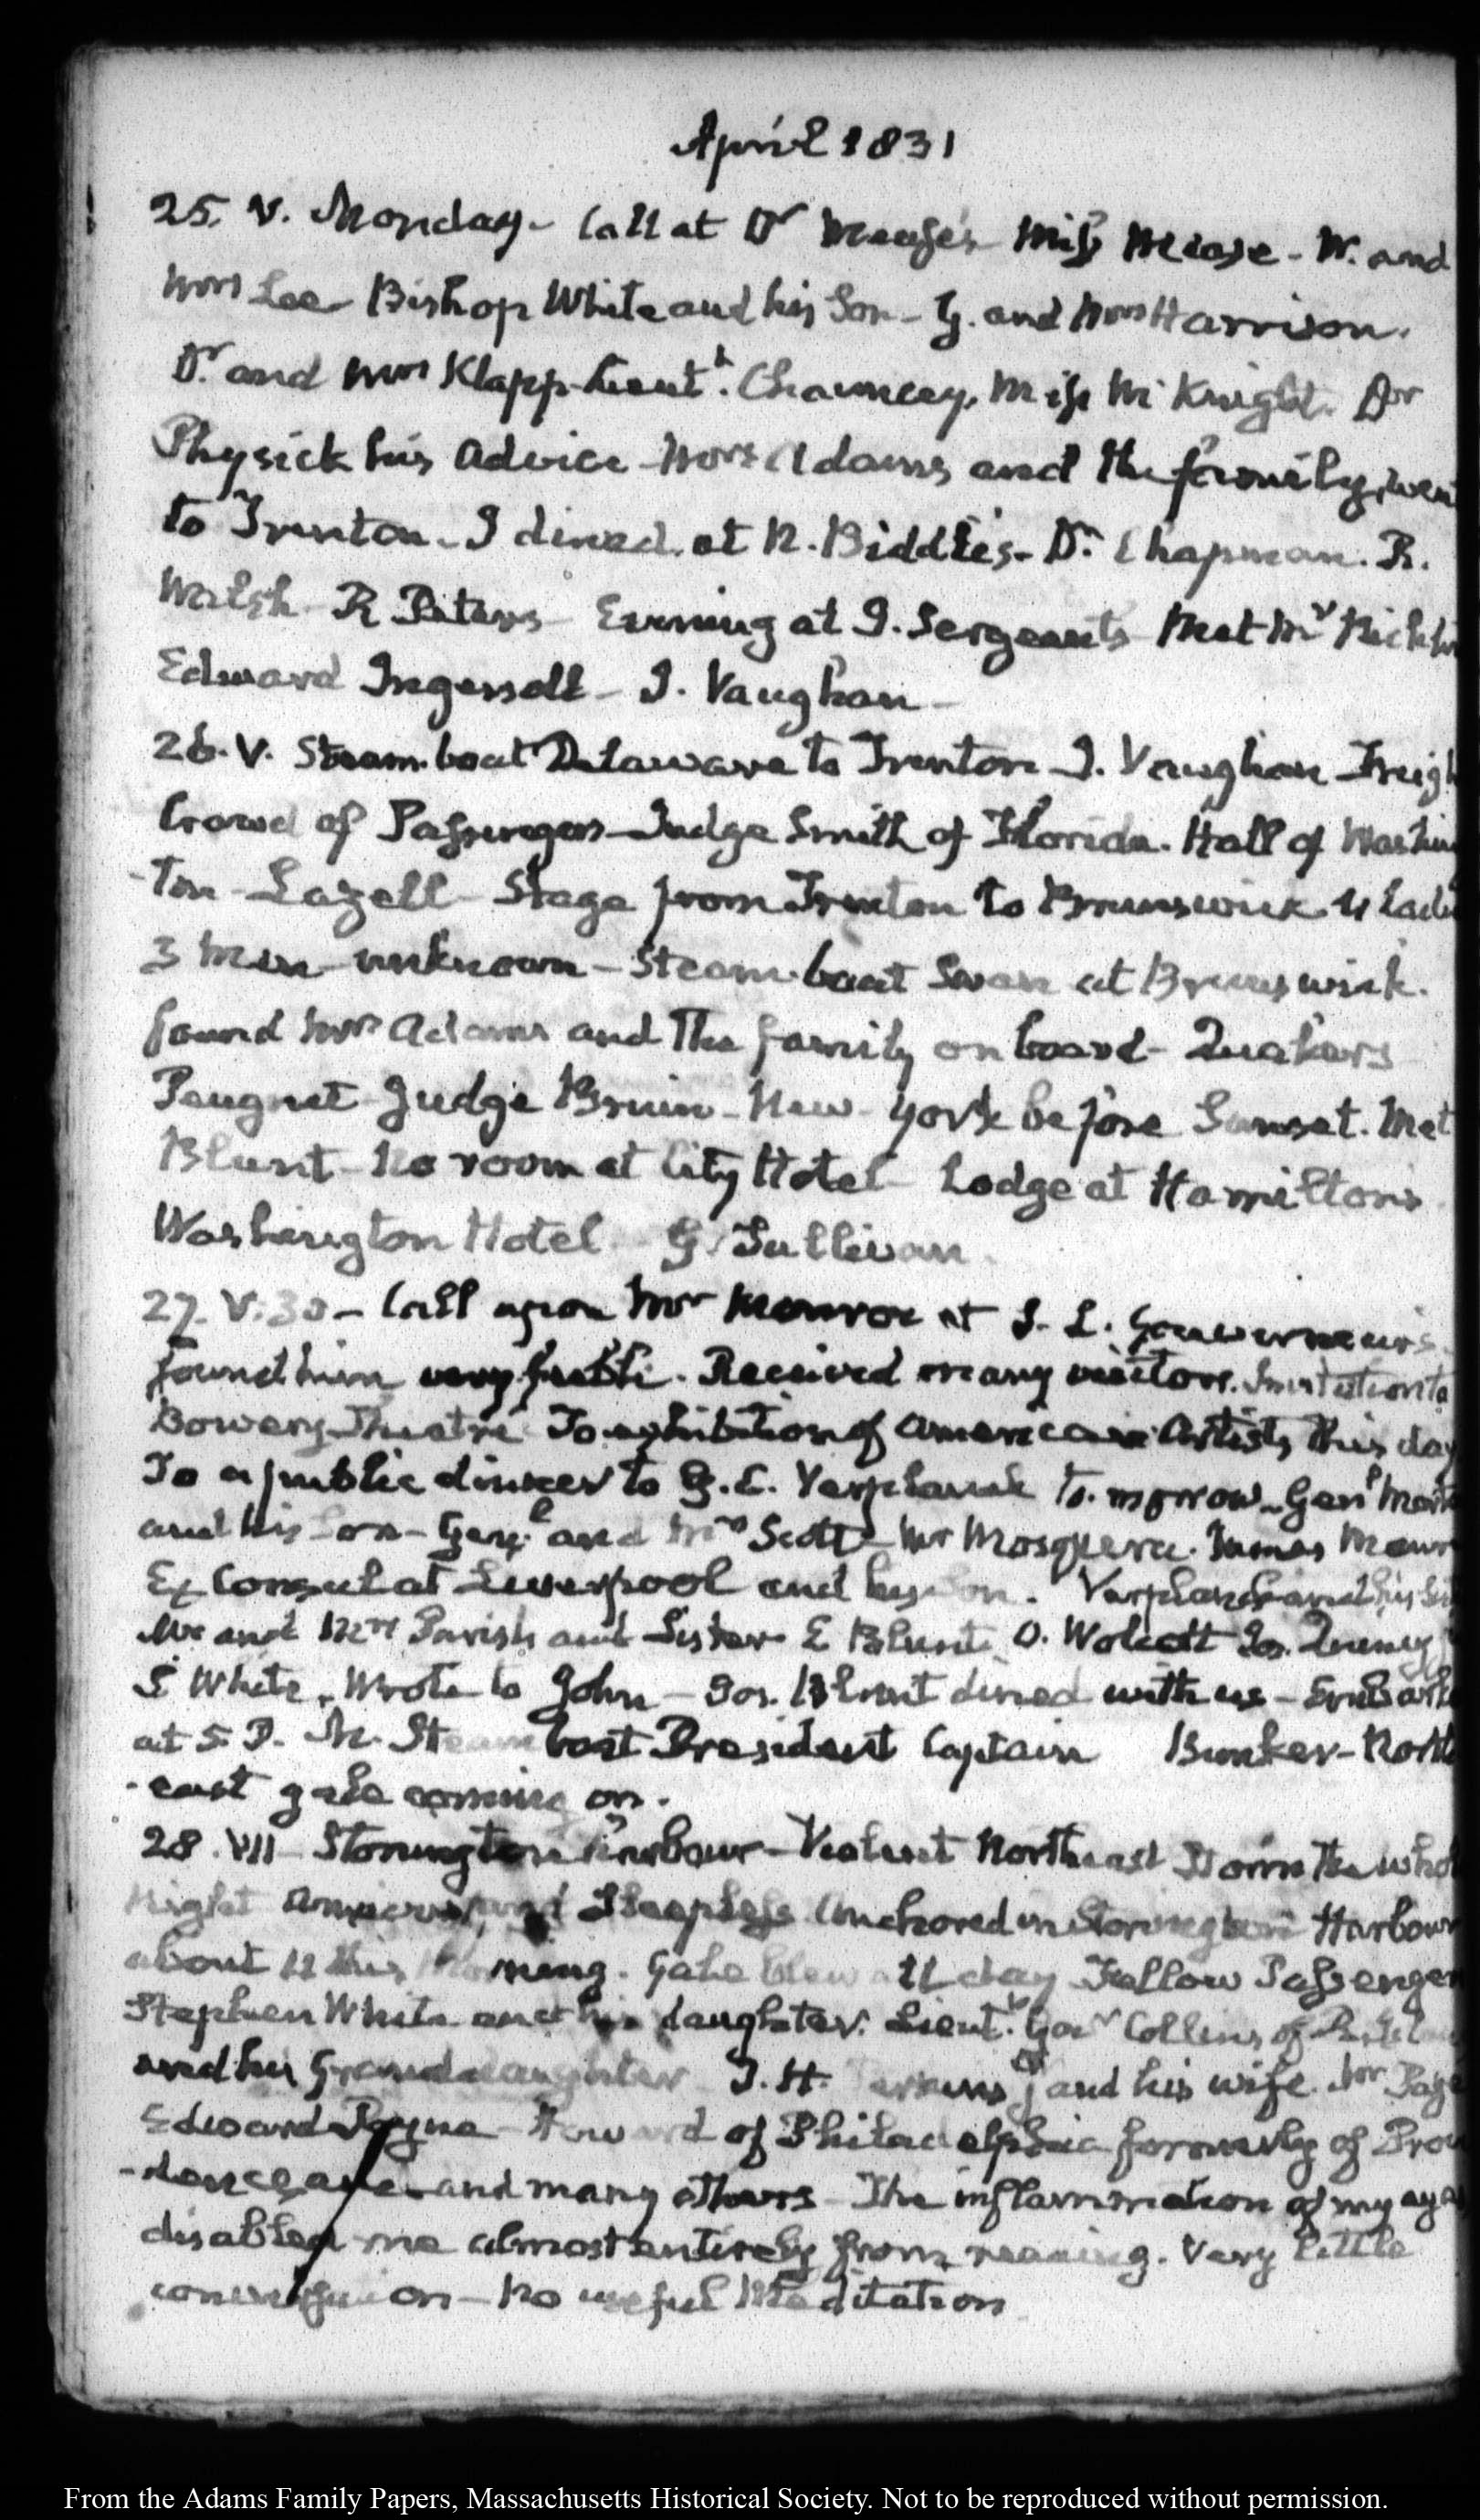 April 1831
25. V. Monday. Call at Dr Mease's Miss Mease. W. and
Mrs Lee Bishop White and his Son - G. and Mrs Harrison.
Dr. and Mrs Klapp. Lieutt. Chauncey, Miss McKnight. Dr
Physick his advice Mrs Adams and the family, went
to Trenton. I dined at N. Biddle's. Dr. Chapman. R.
Walsh R Peters Evening at J. Sergeants Met Mr
Edward Ingersoll - J. Vaughan
26. V. Steam-boat Delaware to Trenton J. Vaughan
Crowd of Passengers - Judge Smith of Florida. Hall of Washing
-ton - Lazell - Stage from Trenton to Brunswick 4
3 Men unknown - Steam-boat Swan at Brunswick.
found Mrs Adams and the family on board - Quakers
Peugnet Judge Bruin - New York before Sunset. Met
Blunt - No room at City Hotel - Lodge at Hamilton's
Washington Hotel G Sullivan
27. V:30 - Call upon Mr Monroe at S. L. Gouverneur's.
found him very feeble. Received many visitors. Invitation to
Bowery Theatre To exhibition of American Artists this day
To a public dinner to G. C. Verplanck to-morrow - Genl
and his son - Genl. and Mrs Scott Mr Mosquera. James
Ex Consul at Liverpool and his Son. Verplanck and his
Mr and Mrs Parish and Sister E Blunt. O. Wolcott Jos. Quincy
S White. Wrote to John - Jos. Blunt dined with us - Embark
at 5 P. M. Steam boat President Captain Bunker - North
-east gale coming on.
28. VII Stonington Harbour - Violent Northeast Storm the whole
Night anxious and Sleepless Anchored in Stonington Harbour
about 11 this Morning. Gale blew all day Fellow Passengers
Stephen White and his daughter. Lieutt. Govr Collins of
and his Granddaughter T. H. Perkins Jr and his wife. Mr
Edward Payne - Howard of Philadelphia formerly of Prov
-dence and many others - The inflammation of my eyes
disabled me almost entirely from reading. Very little
conversation - No useful Meditation
From the Adams Family Papers, Massachusetts Historical Society. Not to be reproduced without permission.